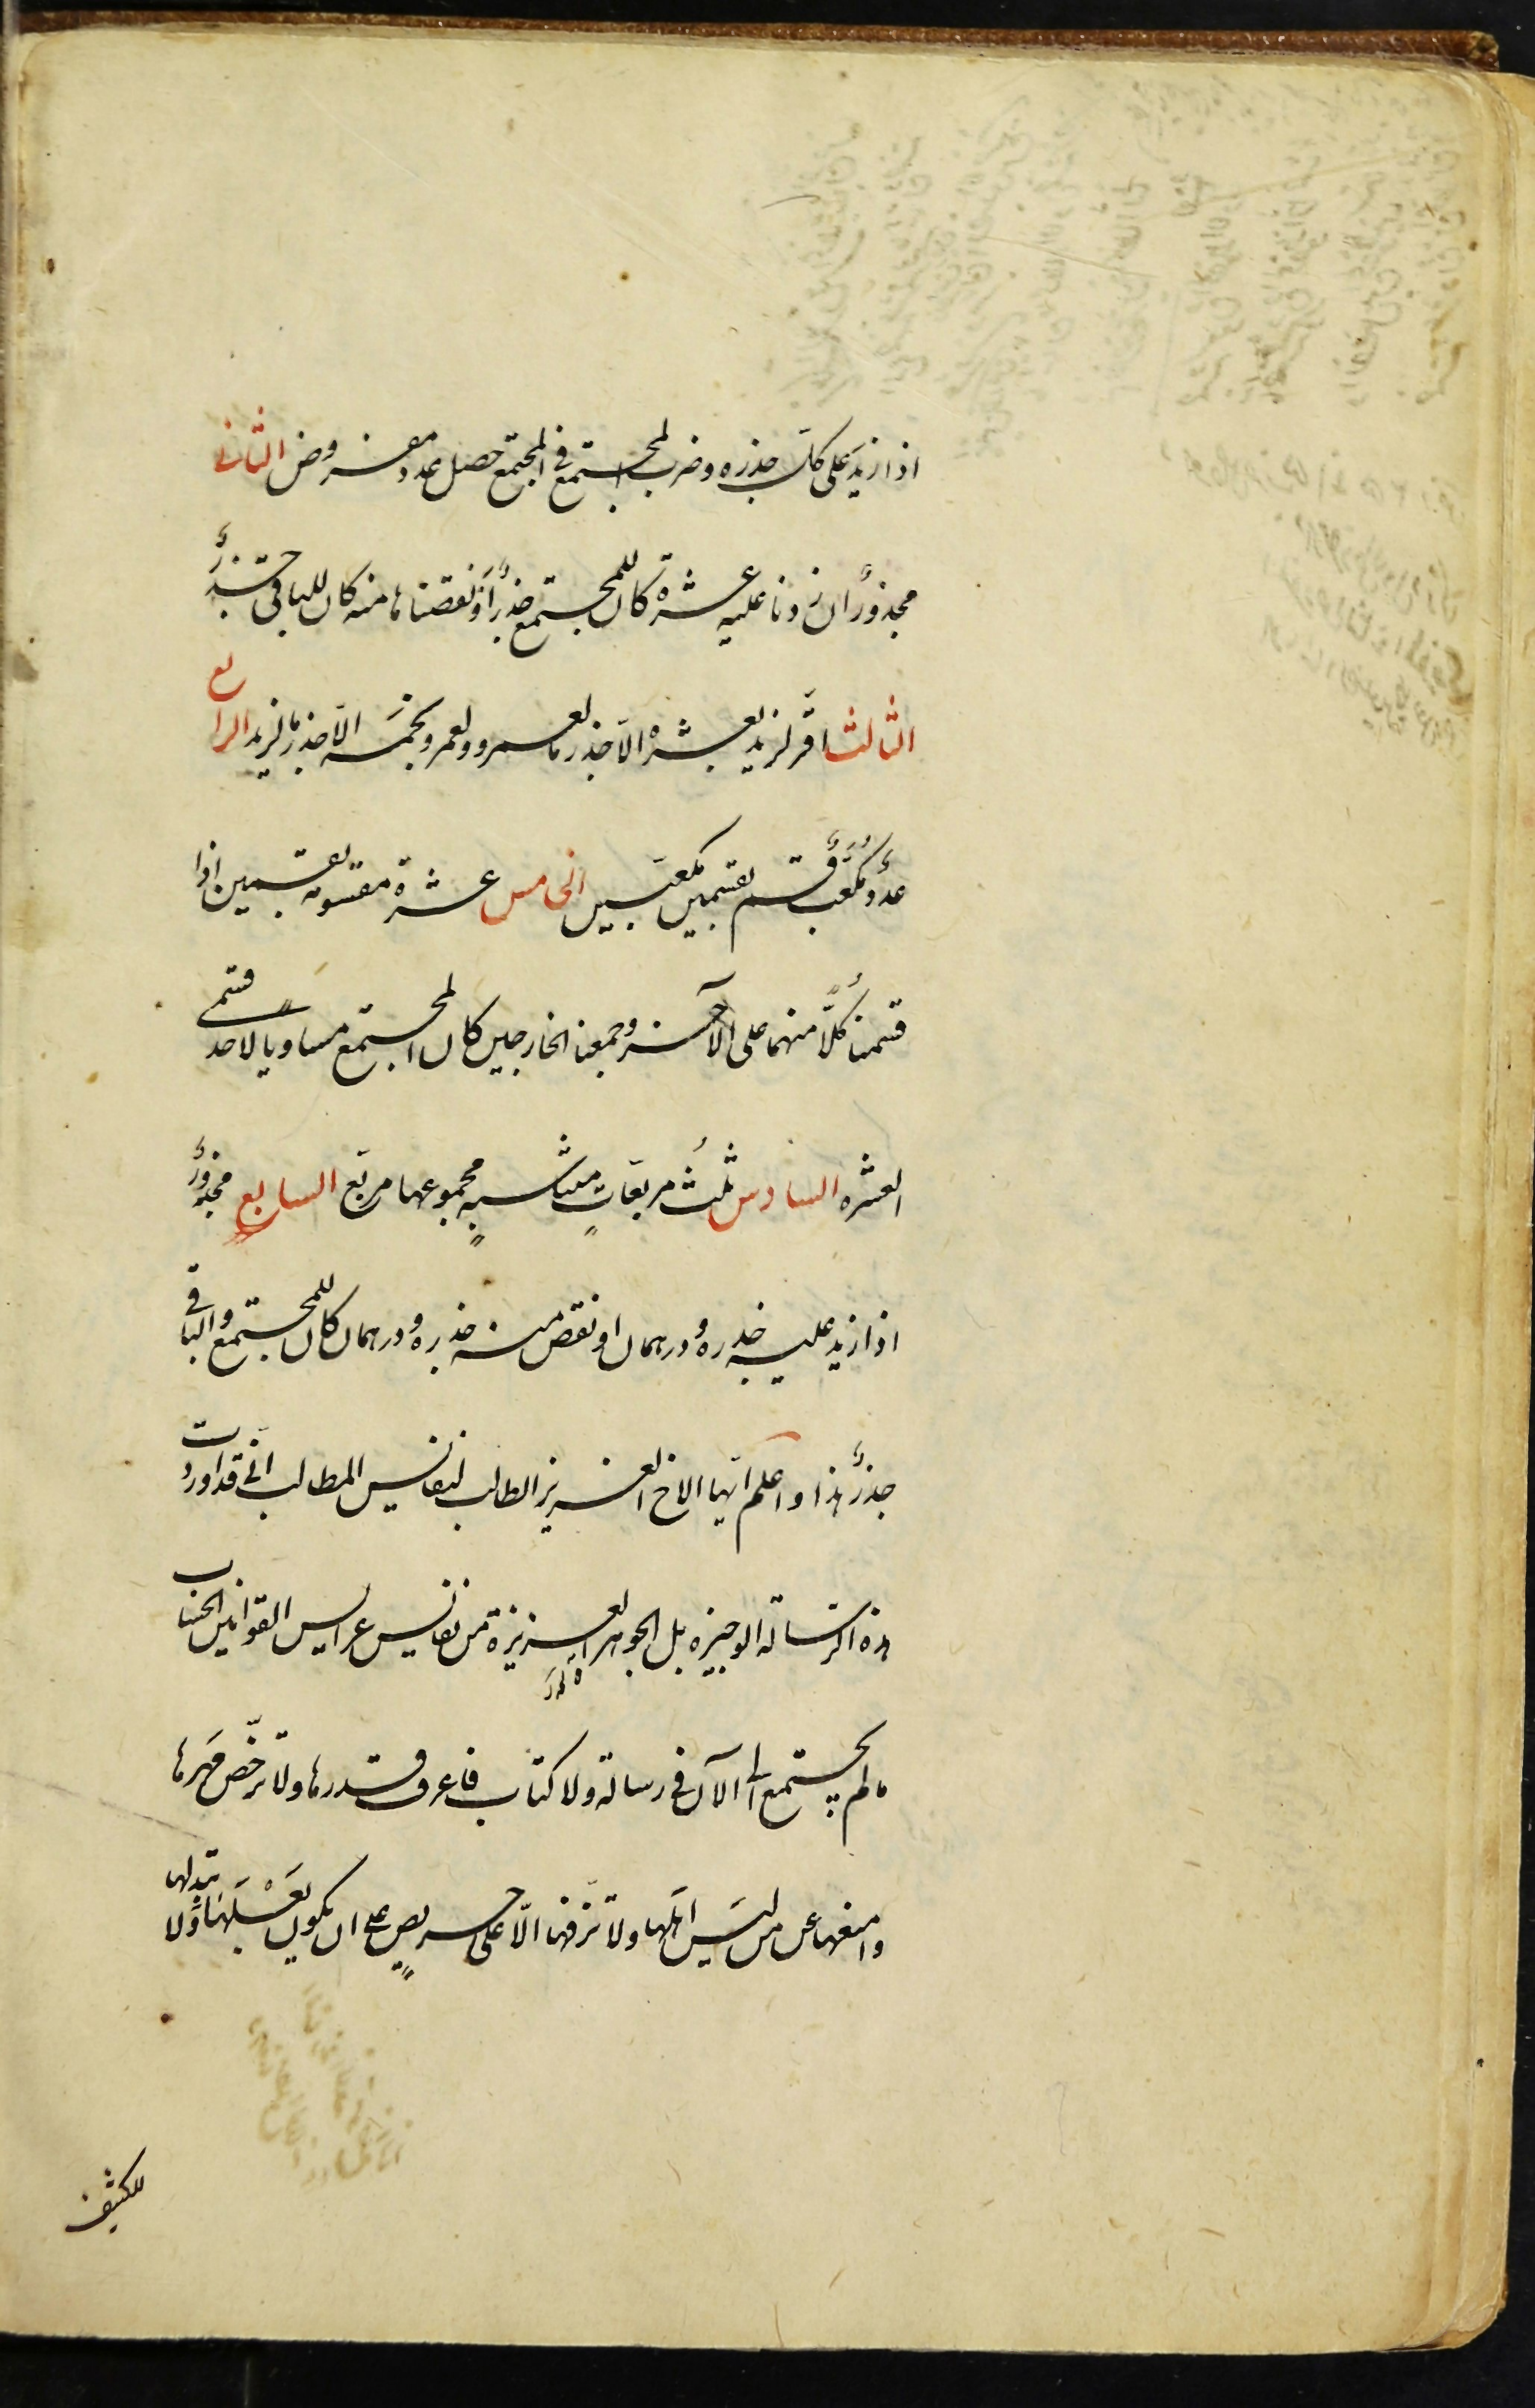 اذا زيد على كل جذره وضرب المجتمع في المجتمع حصل عدد مفروض الثاني
مجذور ان زدنا عليه عشرة كان للمجتمع جذر او نقصناها منه كان للباقي جذر
الثالث اقر لزيد بعشرة الا جذر ما لعمرو ولعمرو بخمسة الا جذر ما لزيد الرابع
عدد مكعب قسم بقسمين مكعبين الخامس عشرة مقسومة بقسمين اذا
قسمنا كلا منهما على الآخر وجمعنا الخارجين كان المجتمع مساويا لاحد قسمي
العشره السادس ثلث مربعات متناسبة مجموعها مربع السابع مجذور
اذا زيد عليه جذره ودرهمان او نقص منه جذره ودرهمان كان للمجتمع والباقي
جذر هذا واعلم ايها الاخ العزيز الطالب لنفائس المطالب اني قد اوردت
هذه الرسالة الوجيزه بل الجوهرة العزيزة من نفائس عرايس القوانين الحساب
ما لم يجتمع الى الآن في رسالة ولا كتاب فاعرف قدرها ولا ترخص مهرها
وامنعها عن من ليس اهلها ولا تزفها الا على حريص على ان يكون بعلها ولا تبذلها
لكثيف